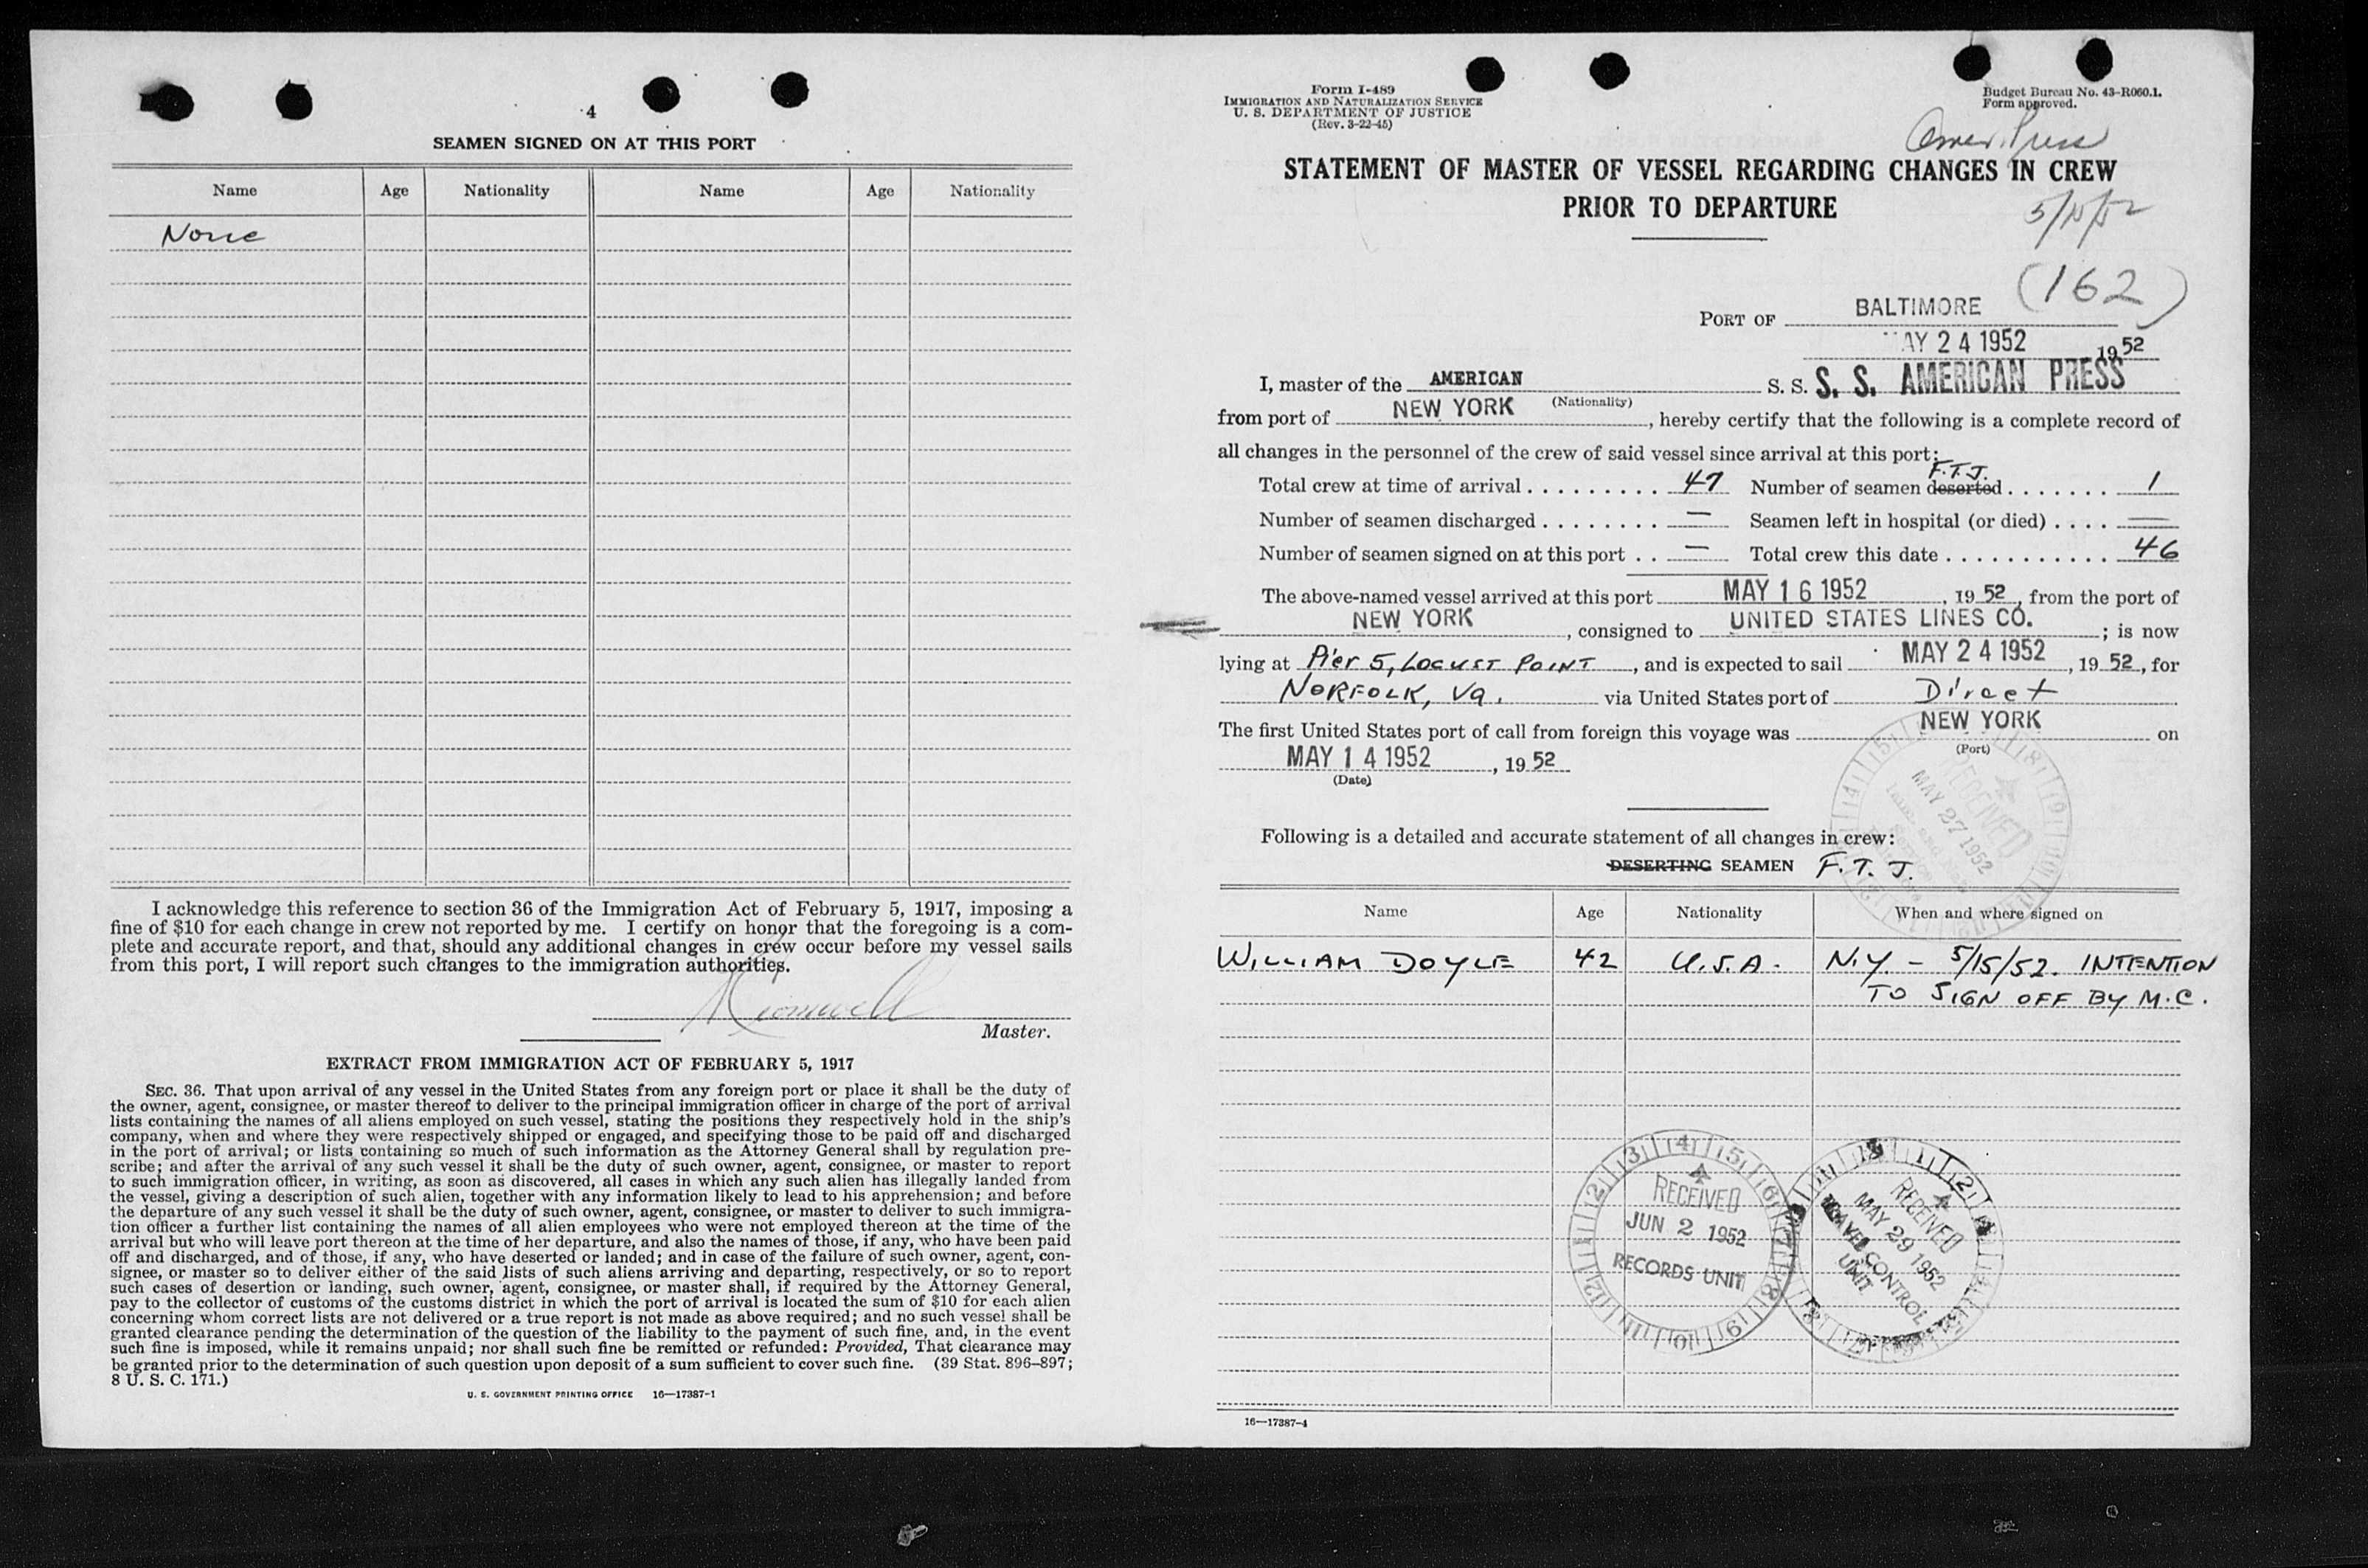 4
SEAMEN SIGNED ON AT THIS PORT
Name Age Nationality Name Age Nationality
None
I acknowledge this reference to section 36 of the Immigration Act of February 5, 1917, imposing a
fine of $10 for each change in crew not reported by me. I certify on honor that the foregoing is a com-
plete and accurate report, and that, should any additional changes in crew occur before my vessel sails
from this port, I will report such changes to the immigration authorities.
Master.
EXTRACT FROM IMMIGRATION ACT OF FEBRUARY 5, 1917
SEC. 36. That upon arrival of any vessel in the United States from any foreign port or place it shall be the duty of
the owner, agent, consignee, or master thereof to deliver to the principal immigration officer in charge of the port of arrival
lists containing the names of all aliens employed on such vessel, stating the positions they respectively hold in the ship's
company, when and where they were respectively shipped or engaged, and specifying those to be paid off and discharged
in the port of arrival; or lists containing so much of such information as the Attorney General shall by regulation pre-
scribe; and after the arrival of any such vessel it shall be the duty of such owner, agent, consignee, or master to report
to such immigration officer, in writing, as soon as discovered, all cases in which any such alien has illegally landed from
the vessel, giving a description of such alien, together with any information likely to lead to his apprehension; and before
the departure of any such vessel it shall be the duty of such owner, agent, consignee, or master to deliver to such immigra-
tion officer a further list containing the names of all alien employees who were not employed thereon at the time of the
arrival but who will leave port thereon at the time of her departure, and also the names of those, if any, who have been paid
off and discharged, and of those, if any, who have deserted or landed; and in case of the failure of such owner, agent, con-
signee, or master so to deliver either of the said lists of such aliens arriving and departing, respectively, or so to report
such cases of desertion or landing, such owner, agent, consignee, or master shall, if required by the Attorney General,
pay to the collector of customs of the customs district in which the port of arrival is located the sum of $10 for each alien
concerning whom correct lists are not delivered or a true report is not made as above required; and no such vessel shall be
granted clearance pending the determination of the question of the liability to the payment of such fine, and, in the event
such fine is imposed, while it remains unpaid; nor shall such fine be remitted or refunded: Provided, That clearance may
be granted prior to the determination of such question upon deposit of a sum sufficient to cover such fine. (39 Stat. 896–897;
8 U. S. C. 171.)
U. S. GOVERNMENT PRINTING OFFICE 16—17387-1
Form I-489
IMMIGRATION AND NATURALIZATION SERVICE
U. S. DEPARTMENT OF JUSTICE
(Rev. 3-22-45)
Budget Bureau No. 43-R060.1.
Form approved.
Amer. Press
STATEMENT OF MASTER OF VESSEL REGARDING CHANGES IN CREW
PRIOR TO DEPARTURE
(162)
PORT OF BALTIMORE
MAY 24 1952 1952
I, master of the AMERICAN S. S. S. S. AMERICAN PRESS
(Nationality)
from port of NEW YORK, hereby certify that the following is a complete record of
all changes in the personnel of the crew of said vessel since arrival at this port:
F.T.J.
Total crew at time of arrival . . . . . . . . . 47 Number of seamen deserted . . . . . . . 1
Number of seamen discharged . . . . . . . . — Seamen left in hospital (or died) . . . . —
Number of seamen signed on at this port . . — Total crew this date . . . . . . . . . . . . 46
The above-named vessel arrived at this port MAY 16 1952, 1952, from the port of
NEW YORK, consigned to UNITED STATES LINES CO.; is now
lying at Pier 5, LOCUST POINT, and is expected to sail MAY 24 1952, 1952, for
NORFOLK, Va. via United States port of Direct
The first United States port of call from foreign this voyage was NEW YORK on
(Port)
MAY 14 1952, 1952
(Date)
RECEIVED
MAY 27 1952
Following is a detailed and accurate statement of all changes in crew:
DESERTING SEAMEN F.T.J.
Name Age Nationality When and where signed on
WILLIAM DOYLE 42 U.S.A. N.Y. - 5/15/52. INTENTION
TO SIGN OFF BY M.C.
RECEIVED
JUN 2 1952
RECORDS UNIT
RECEIVED
MAY 29 1952
TRAVEL CONTROL
UNIT
16—17387-4